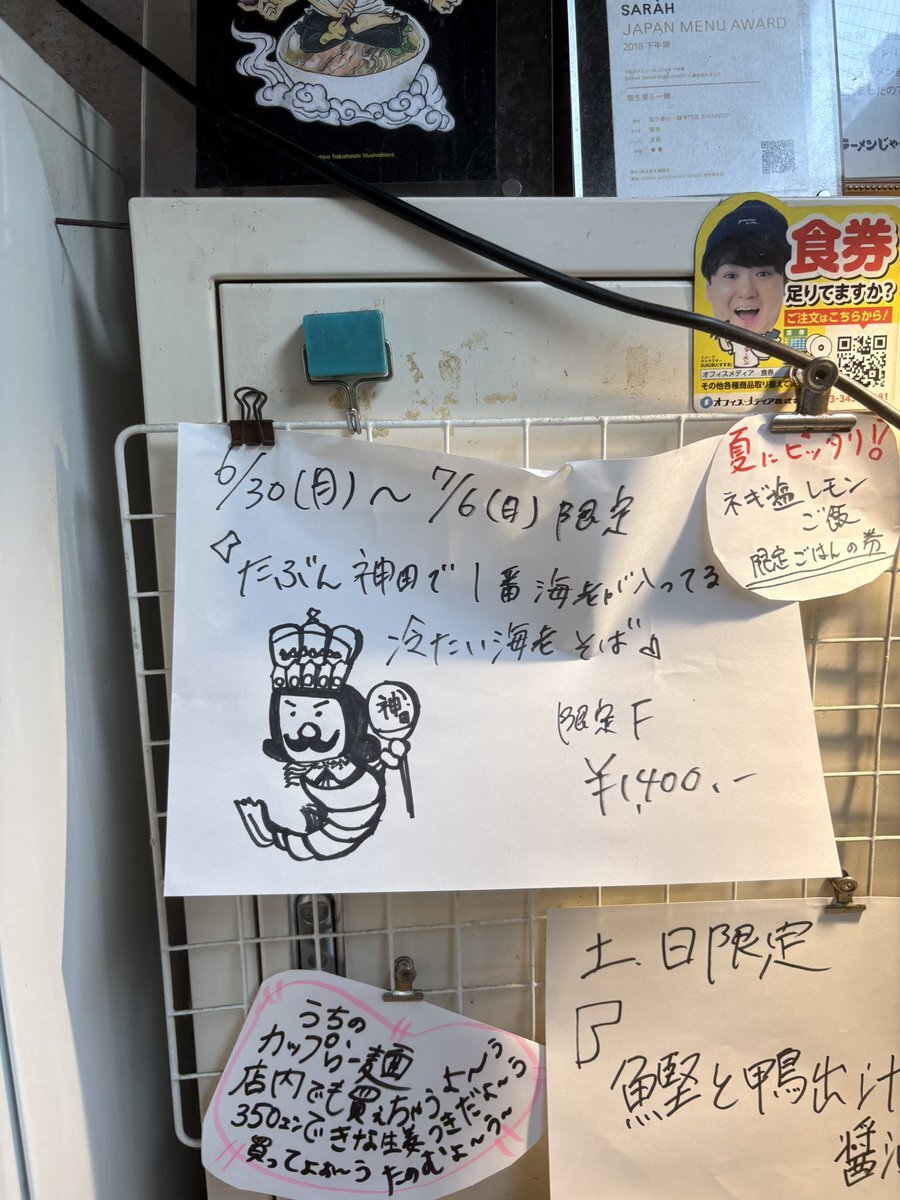 SARAH
JAPAN MENU AWARD
2018 下半期
塩生姜らー麺
hiro Takahashi illustrations
食券
足りてますか?
ご注文はこちらから!
オフィスメディア 食券
その他各種商品取り揃えて
オフィス・メディア株式
夏にピッタリ!!
ネギ塩レモン
ご飯
限定ごはんの券
6/30(月)～7/6(日)限定
『たぶん神田で1番海老が入ってる
冷たい海老そば』
神田
限定F
¥1,400.-
うちの
カップらー麺
店内でも買えちゃうよ〜う
350エンできな生姜つきだよ〜う
買ってよぉ〜う たのむよ〜う〜
土、日限定
『
鰹と鴨出汁
醤油